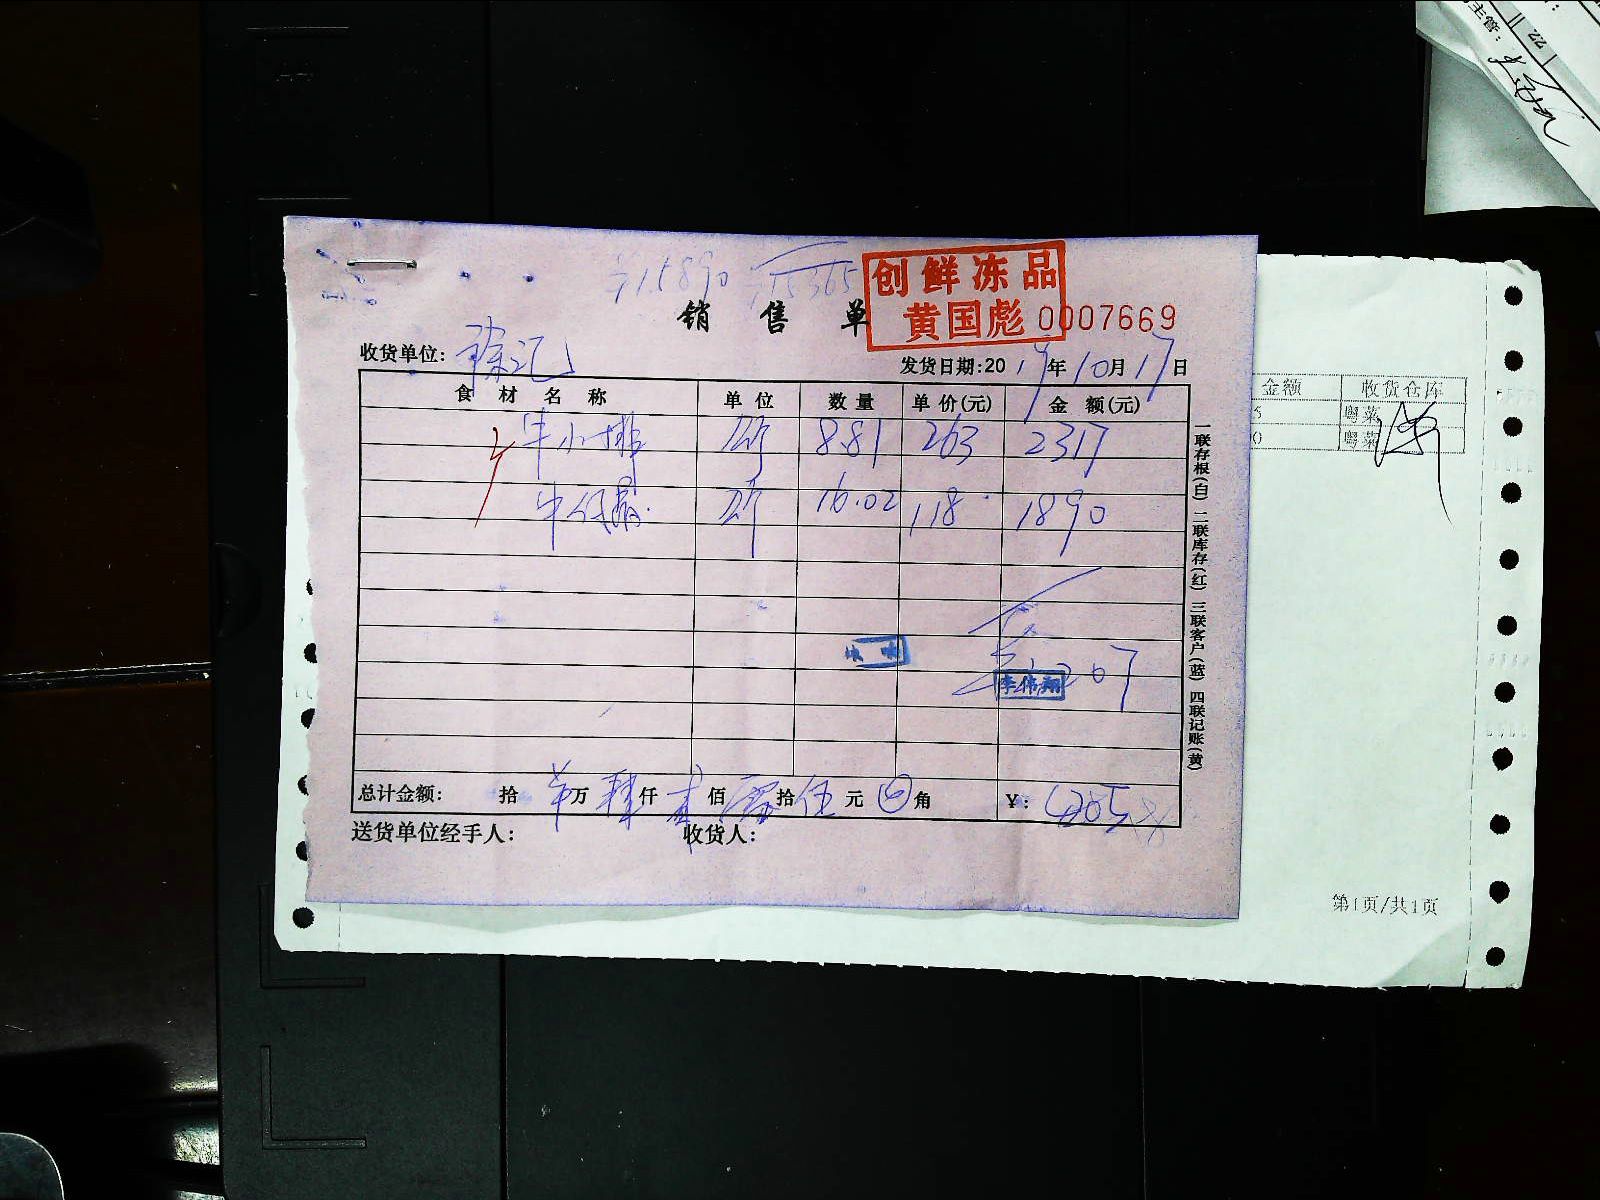 ¥15890 ¥15365
创鲜冻品
黄国彪
销售单 0007669
收货单位: 徐记 发货日期:2019年10月17日
食材名称 单位 数量 单价(元) 金额(元)
牛小排 斤 8.81 263 2317
牛仔 斤 16.02 118 1890
李伟翔
总计金额: 拾 万 仟 佰 拾 伍元 角 ¥: 4205
送货单位经手人: 收货人:
一联存根(白) 二联库存(红) 三联客户(蓝) 四联记账(黄)
金额 收货仓库
5 粤菜
0 粤菜
第1页/共1页
主管: